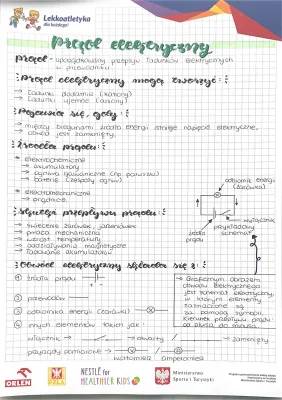 Lekkoatletyka
dla każdego!
Prąd elektryczny
prąd - uporządkowany przepływ ładunków elektrycznych
w przewodniku
Prąd elektryczny mogą tworzyć:
→ ładunki dodatnie (kationy)
→ ładunki ujemne (aniony)
Pojawia się, gdy:
→ między biegunami źródła energii istnieje napięcie elektryczne,
→ obwód jest zamknięty.
Źródła prądu:
elektrochemiczne
→ akumulatory
→ ogniwa galwaniczne
→ baterie (zespoły ogniw)
elektromechaniczne
→ prądnice
odbiornik energii
(żarówka)
źródło
prądu
wyłącznik
przykładowy
schemat
Skutki przepływu prądu:
→ świecenie żarówek, jarzeniówek
→ praca mechaniczna
→ wzrost temperatury
→ oddziaływanie magnetyczne
→ ładowanie akumulatorów
Obwód elektryczny składa się z:
① źródła prądu
② przewodów
③ odbiornika energii (żarówki)
④ innych elementów takich jak:
→ Graficznym obrazem
obwodu elektrycznego
jest schemat elektryczny,
w którym elementy
zaznaczone są
za pomocą symboli.
Kierunek przepływu prądu
od plusa do minusa
wyłącznik → otwarty / → zamknięty
przyrządy pomiarowe
woltomierz amperomierz
ORLEN
PZLA
NESTLÉ for
HEALTHIER KIDS
Ministerstwo
Sportu i Turystyki